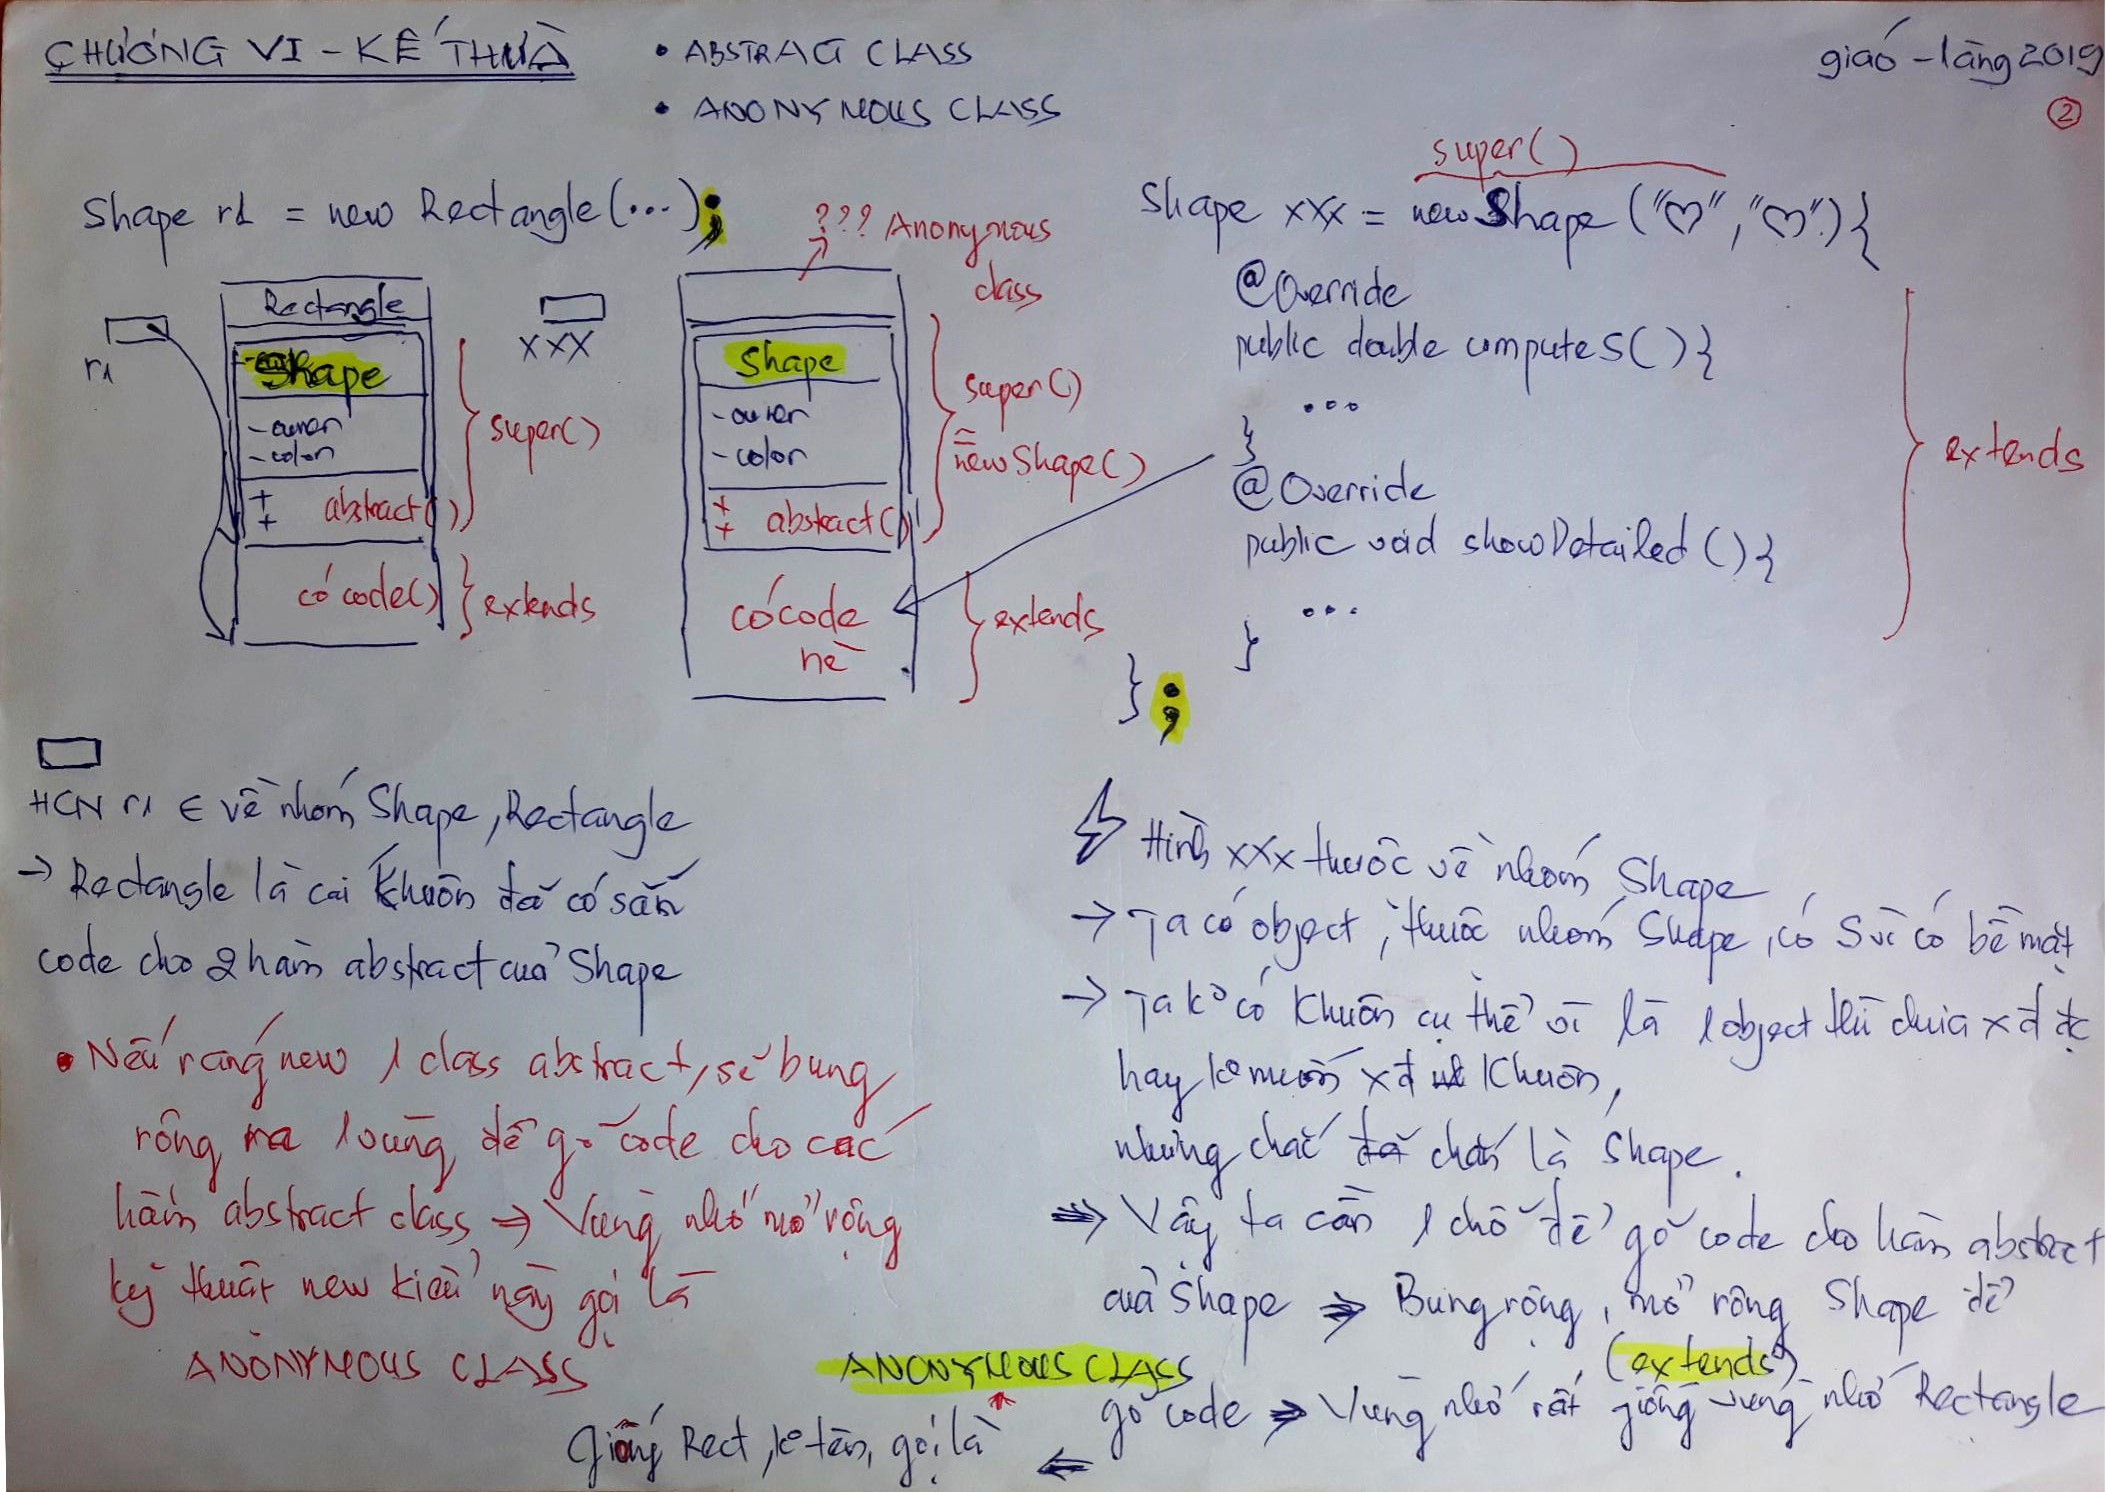 CHƯƠNG VI - KẾ THỪA
• ABSTRACT CLASS
• ANONYMOUS CLASS
giáo-làng 2019
2
Shape r1 = new Rectangle(...);
r1
Rectangle
Shape
- owner
- color
+
+ abstract()
có code()
super()
extends
xxx
??? Anonymous
class
Shape
- owner
- color
+
+ abstract()
có code
nè
super()
= new Shape()
extends
super()
Shape xxx = new Shape("♡","♡"){
@Override
public double computeS(){
...
}
@Override
public void showDetailed(){
...
}
};
extends
HCN r1 ∈ về nhóm Shape, Rectangle
→ Rectangle là cái Khuôn đã có sẵn
code cho 2 hàm abstract của Shape
• Nếu ráng new 1 class abstract, sẽ bung
rộng ra 1 vùng để gõ code cho các
hàm abstract class ⇒ Vùng nhớ mở rộng
kỹ thuật new kiểu này gọi là
ANONYMOUS CLASS
Hình xxx thuộc về nhóm Shape
→ Ta có object, thuộc nhóm Shape, có S vì có bề mặt
→ Ta ko có Khuôn cụ thể vì là 1 object thì chưa xđ đc
hay ko muốn xđ Khuôn,
nhưng chắc đã chắn là Shape.
⇒ Vậy ta cần 1 chỗ để gõ code cho hàm abstract
của Shape ⇒ Bung rộng, mở rộng Shape để
(extends)
gõ code ⇒ Vùng nhớ rất giống vùng nhớ Rectangle
⇐
Giống Rect, ko tên, gọi là
ANONYMOUS CLASS